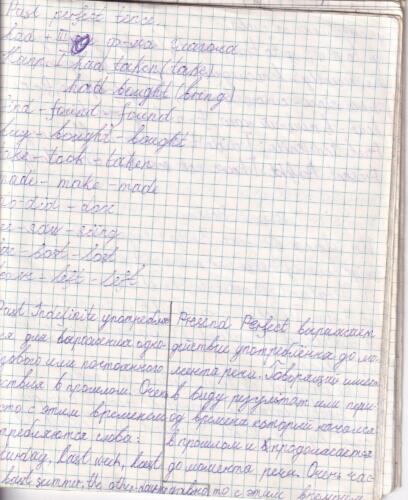 Past perfect tence.
had + III ф-ма глагола
had taken (take)
had bought (bring)
find - found - found
buy - bought - bought
take - took - taken
made - make - made
do - did - done
see - saw -
lost - lost
left - left
Past Indefinite употребляе
ся для выражения одно
ствия в прошлом. Очень
сто с этим временем
требляются слова:
last week, last
last summer, the other
Present Perfect выражает
действие употреблённа до мо
мента речи. Говорящий имеет
в виду результат или пери
од времена который начался
в прошлом и продолжается
до момента речи. Очень час
то с этим временем